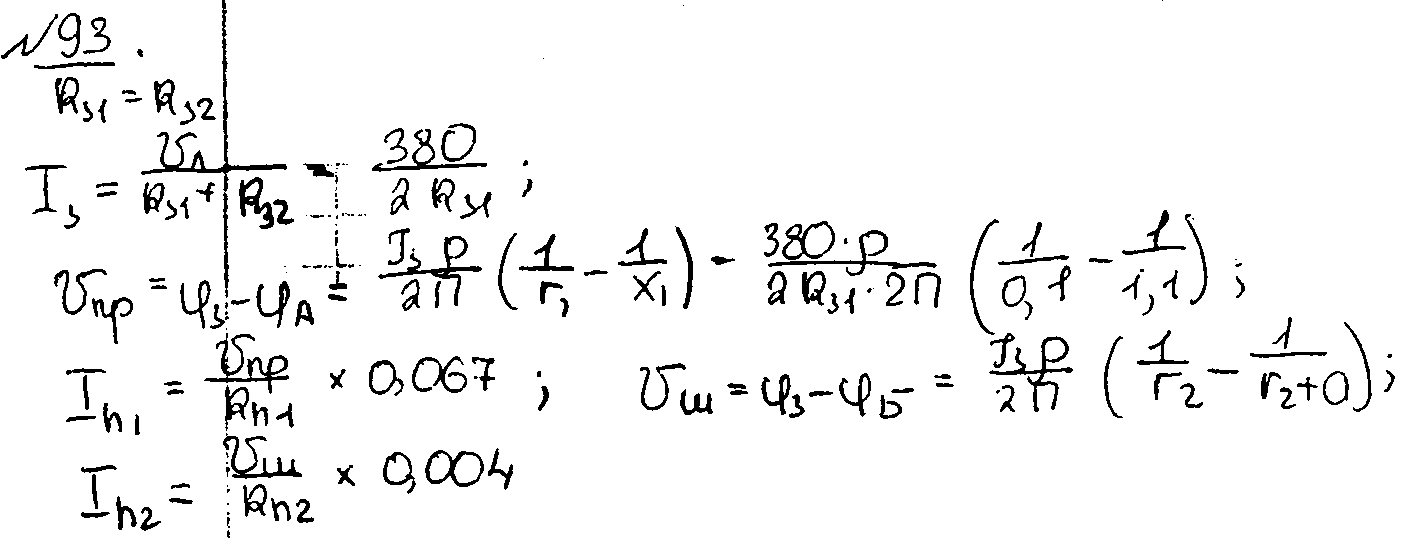 №93.
Rз1 = Rз2
Iз = Uл / (Rз1 + Rз2) = 380 / (2 Rз1) ;
Uпр = φз - φA = Iз ρ / 2П (1/r1 - 1/x1) - 380·ρ / (2 Rз1 · 2П) (1/0,1 - 1/1,1) ;
Ih1 = Uпр / Rh1 × 0,067 ; Uш = φз - φБ = Iз ρ / 2П (1/r2 - 1/(r2+0)) ;
Ih2 = Uш / Rh2 × 0,004